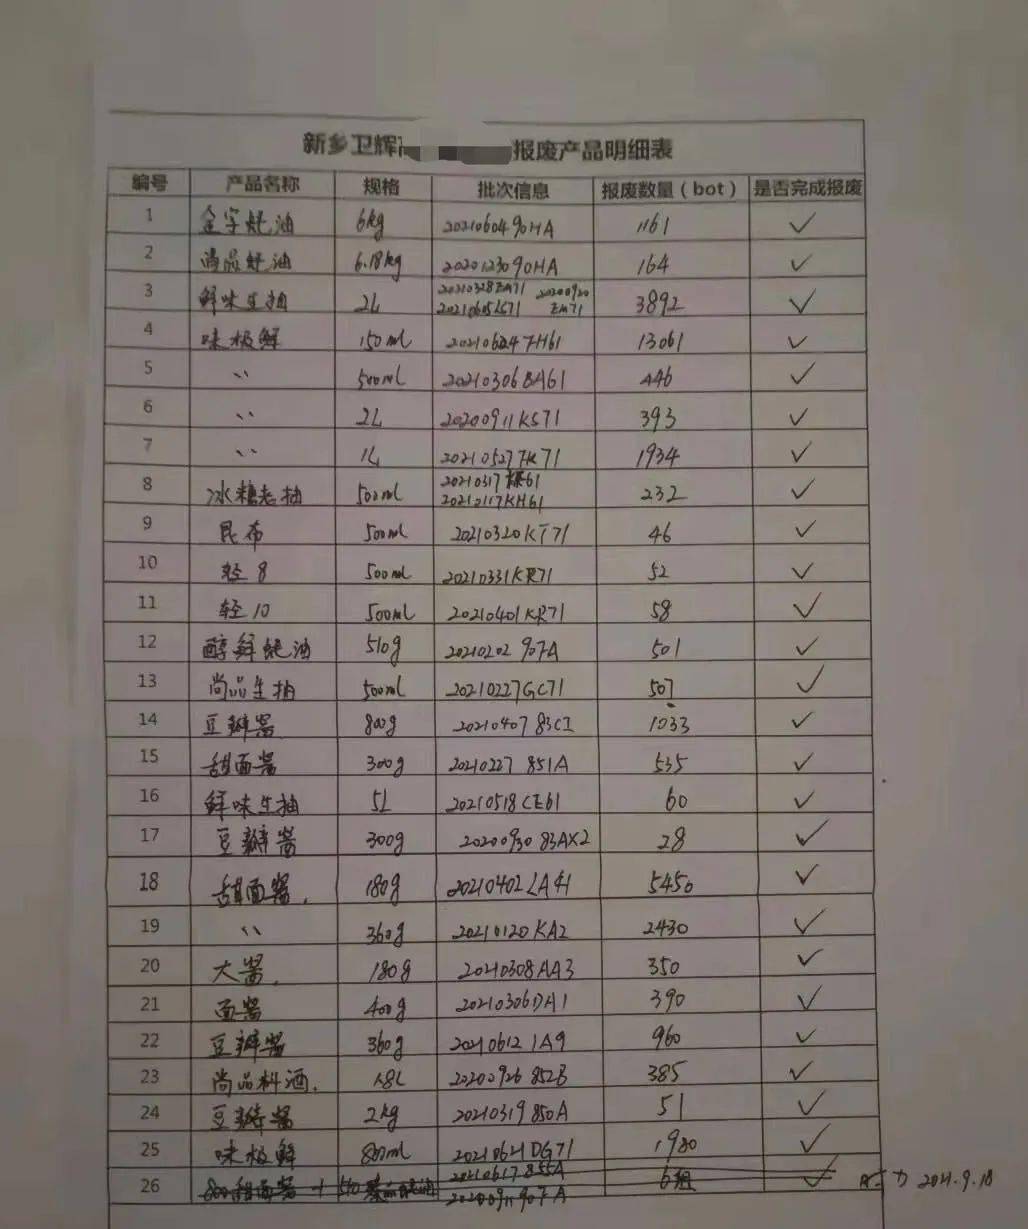 新乡卫辉 报废产品明细表
编号 产品名称 规格 批次信息 报废数量（bot） 是否完成报废
1 金字蚝油 6kg 2021060490HA 1161 ✓
2 尚品蚝油 6.18kg 2020123090HA 164 ✓
3 鲜味生抽 2L 20210328EA71 20200920EM71 20210605LS71 3892 ✓
4 味极鲜 150ml 202106247H61 13061 ✓
5 〃 500ml 20210306BA61 446 ✓
6 〃 2L 20200911KS71 393 ✓
7 〃 1L 202105277K71 1934 ✓
8 冰糖老抽 500ml 20210317 61 20210117KH61 232 ✓
9 昆布 500ml 20210320KT71 46 ✓
10 轻8 500ml 20210331KR71 52 ✓
11 轻10 500ml 20210401KR71 58 ✓
12 醇鲜蚝油 510g 20210202 907A 501 ✓
13 尚品生抽 500ml 20210227GC71 507 ✓
14 豆瓣酱 800g 20210407 83C2 1033 ✓
15 甜面酱 300g 20210227 851A 535 ✓
16 鲜味生抽 5L 20210518CE61 60 ✓
17 豆瓣酱 300g 20200930 83AX2 28 ✓
18 甜面酱. 180g 20210402LA41 5450 ✓
19 〃 360g 20210120KA2 2430 ✓
20 大酱. 180g 20210308AA3 350 ✓
21 面酱 400g 20210306DA1 390 ✓
22 豆瓣酱 360g 20210612 1A9 960 ✓
23 尚品料酒. 1.8L 20200926 852B 385 ✓
24 豆瓣酱 2kg 20210319 850A 51 ✓
25 味极鲜 800ml 20210621DG71 1980 ✓
26 800甜面酱 + 510 蚝油 20210617 855A 20200911 907A 6组 ✓ 2021.9.18